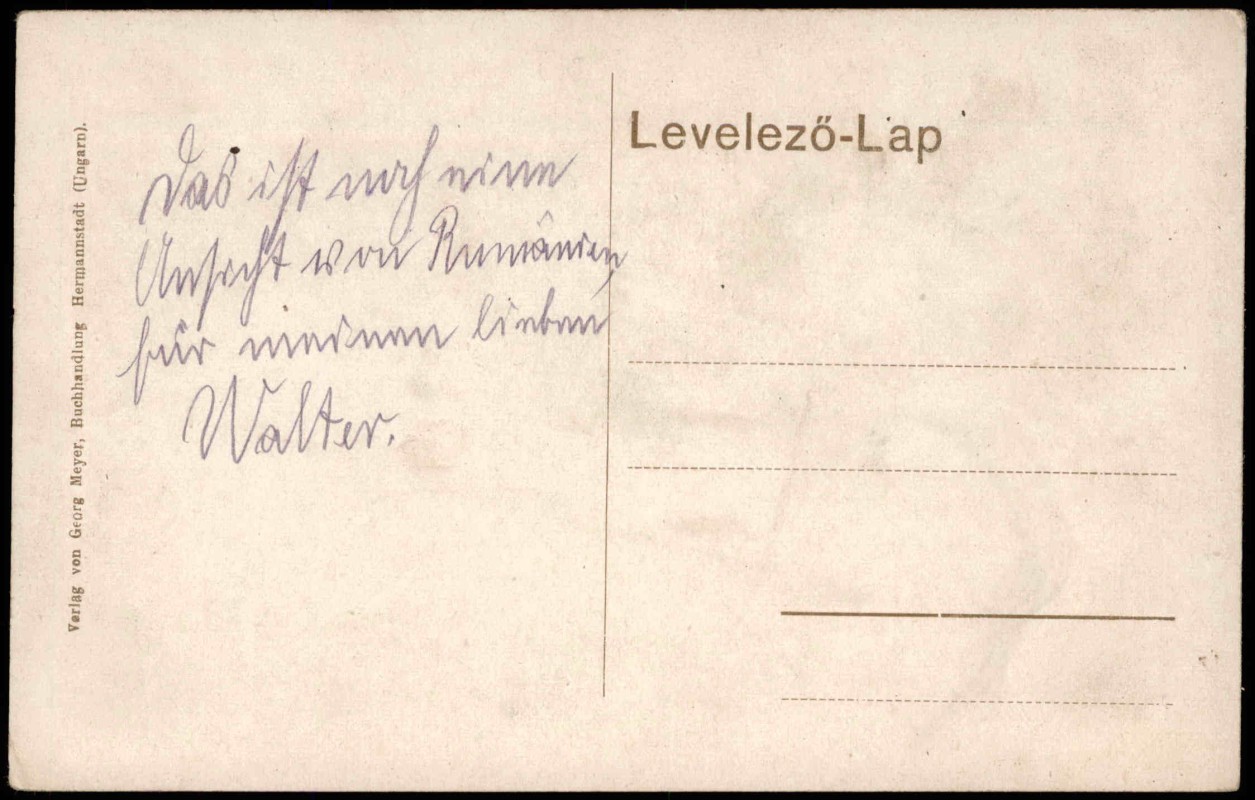 Verlag von Georg Meyer, Buchhandlung Hermannstadt (Ungarn).
Das ist noch eine
Ansicht von Rumänien
für meinen lieben
Walter.
Levelező-Lap